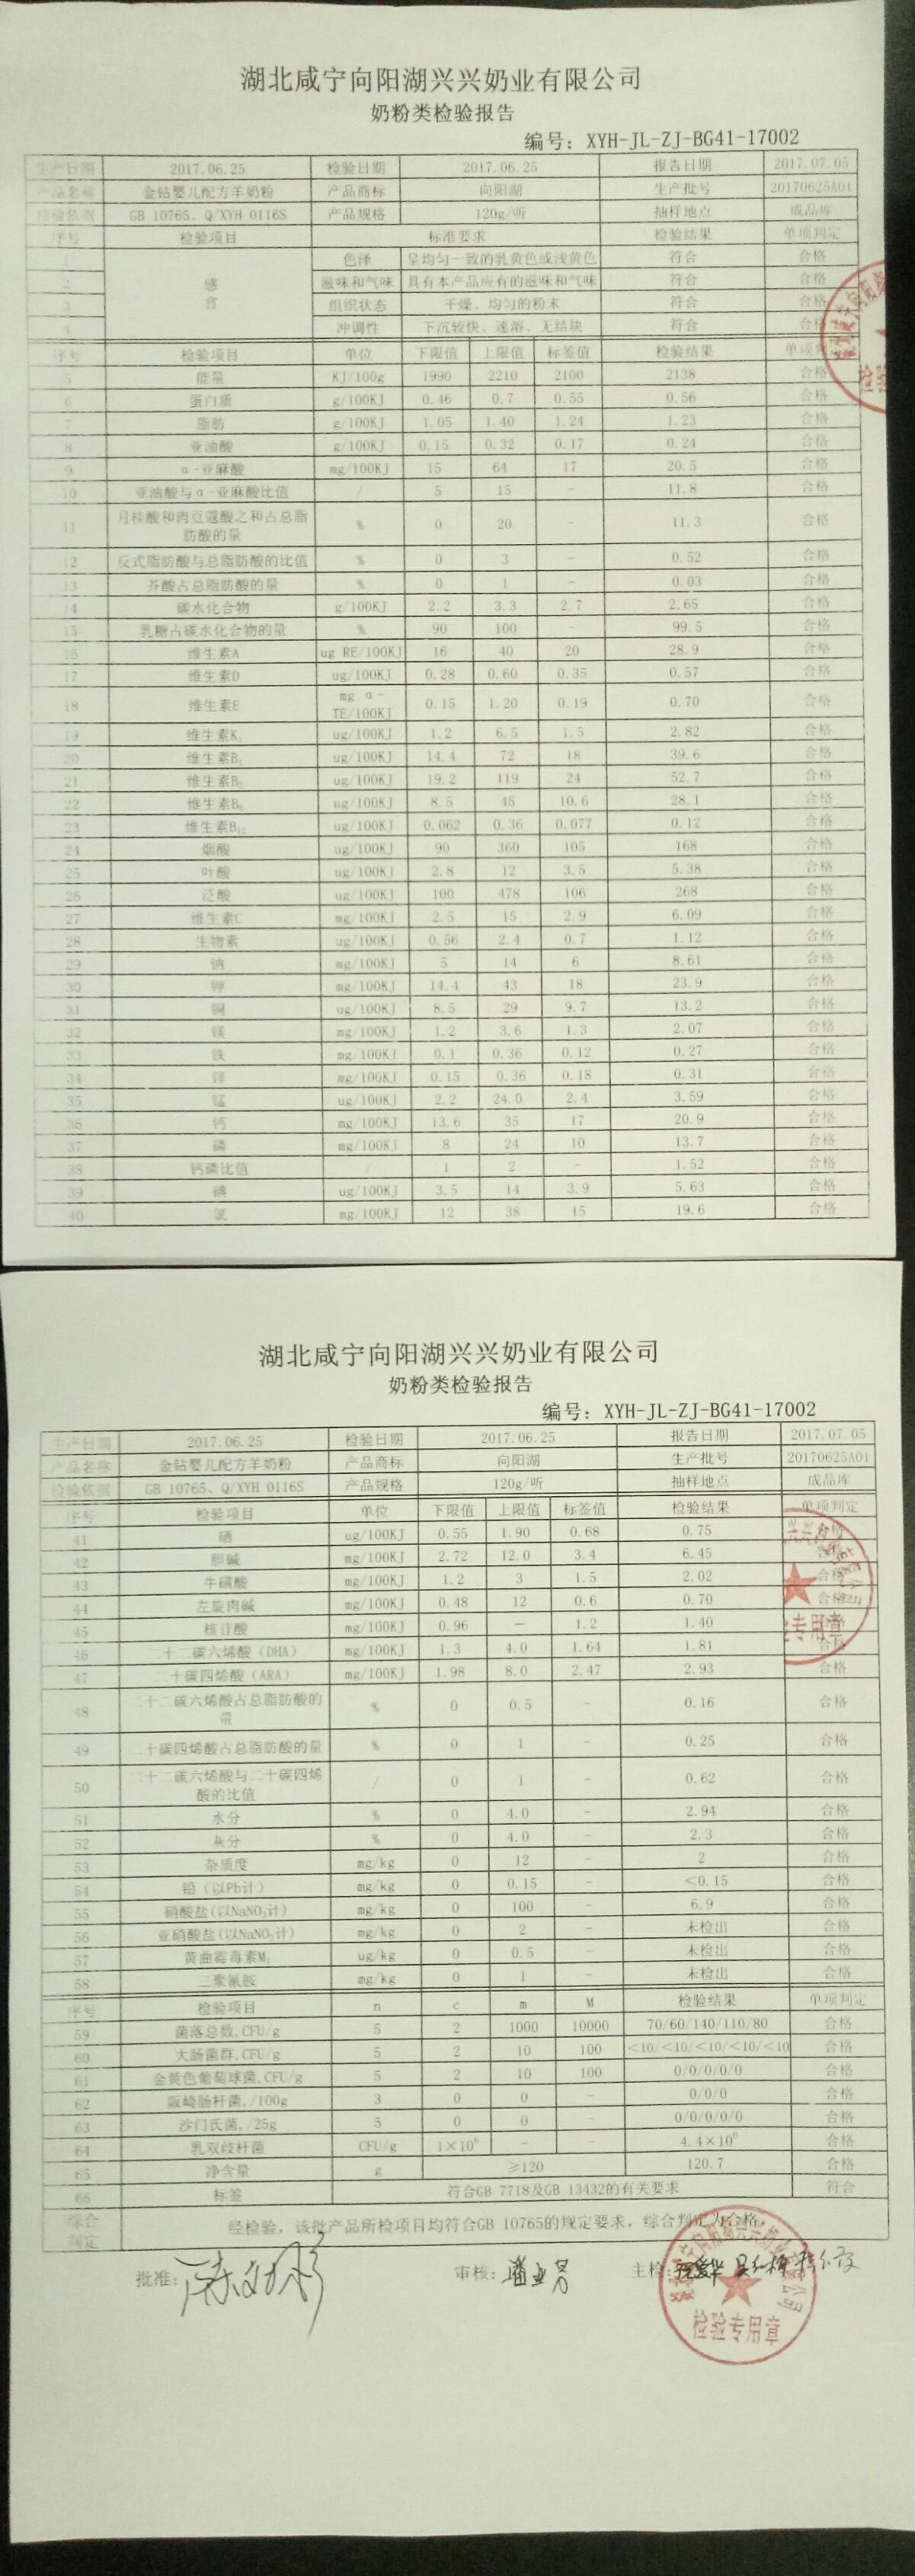 湖北咸宁向阳湖兴兴奶业有限公司
奶粉类检验报告
编号：XYH-JL-ZJ-BG41-17002
生产日期 2017.06.25 检验日期 2017.06.25 报告日期 2017.07.05
产品名称 金钻婴儿配方羊奶粉 产品商标 向阳湖 生产批号 20170625A01
检验依据 GB 10765、Q/XYH 0116S 产品规格 120g/听 抽样地点 成品库
序号 检验项目 标准要求 检验结果 单项判定
1 感官 色泽 呈均匀一致的乳黄色或浅黄色 符合 合格
2 滋味和气味 具有本产品应有的滋味和气味 符合 合格
3 组织状态 干燥、均匀的粉末 符合 合格
4 冲调性 下沉较快、速溶、无结块 符合 合格
序号 检验项目 单位 下限值 上限值 标签值 检验结果 单项判定
5 能量 KJ/100g 1990 2210 2100 2138 合格
6 蛋白质 g/100KJ 0.46 0.7 0.55 0.56 合格
7 脂肪 g/100KJ 1.05 1.40 1.24 1.23 合格
8 亚油酸 g/100KJ 0.15 0.32 0.17 0.24 合格
9 α-亚麻酸 mg/100KJ 15 64 17 20.5 合格
10 亚油酸与α-亚麻酸比值 / 5 15 - 11.8 合格
11 月桂酸和肉豆蔻酸之和占总脂肪酸的量 % 0 20 - 11.3 合格
12 反式脂肪酸与总脂肪酸的比值 % 0 3 - 0.52 合格
13 芥酸占总脂肪酸的量 % 0 1 - 0.03 合格
14 碳水化合物 g/100KJ 2.2 3.3 2.7 2.65 合格
15 乳糖占碳水化合物的量 % 90 100 - 99.5 合格
16 维生素A ug RE/100KJ 16 40 20 28.9 合格
17 维生素D ug/100KJ 0.28 0.60 0.35 0.57 合格
18 维生素E mg α-TE/100KJ 0.15 1.20 0.19 0.70 合格
19 维生素K₁ ug/100KJ 1.2 6.5 1.5 2.82 合格
20 维生素B₁ ug/100KJ 14.4 72 18 39.6 合格
21 维生素B₂ ug/100KJ 19.2 119 24 52.7 合格
22 维生素B₆ ug/100KJ 8.5 45 10.6 28.1 合格
23 维生素B₁₂ ug/100KJ 0.062 0.36 0.077 0.12 合格
24 烟酸 ug/100KJ 90 360 105 168 合格
25 叶酸 ug/100KJ 2.8 12 3.5 5.38 合格
26 泛酸 ug/100KJ 100 478 106 268 合格
27 维生素C mg/100KJ 2.5 15 2.9 6.09 合格
28 生物素 ug/100KJ 0.56 2.4 0.7 1.12 合格
29 钠 mg/100KJ 5 14 6 8.61 合格
30 钾 mg/100KJ 14.4 43 18 23.9 合格
31 铜 ug/100KJ 8.5 29 9.7 13.2 合格
32 镁 mg/100KJ 1.2 3.6 1.3 2.07 合格
33 铁 mg/100KJ 0.1 0.36 0.12 0.27 合格
34 锌 mg/100KJ 0.15 0.36 0.18 0.31 合格
35 锰 ug/100KJ 2.2 24.0 2.4 3.59 合格
36 钙 mg/100KJ 13.6 35 17 20.9 合格
37 磷 mg/100KJ 8 24 10 13.7 合格
38 钙磷比值 / 1 2 - 1.52 合格
39 碘 ug/100KJ 3.5 14 3.9 5.63 合格
40 氯 mg/100KJ 12 38 15 19.6 合格
湖北咸宁向阳湖兴兴奶业有限公司
奶粉类检验报告
编号：XYH-JL-ZJ-BG41-17002
生产日期 2017.06.25 检验日期 2017.06.25 报告日期 2017.07.05
产品名称 金钻婴儿配方羊奶粉 产品商标 向阳湖 生产批号 20170625A01
检验依据 GB 10765、Q/XYH 0116S 产品规格 120g/听 抽样地点 成品库
序号 检验项目 单位 下限值 上限值 标签值 检验结果 单项判定
41 硒 ug/100KJ 0.55 1.90 0.68 0.75 合格
42 胆碱 mg/100KJ 2.72 12.0 3.4 6.45 合格
43 牛磺酸 mg/100KJ 1.2 3 1.5 2.02 合格
44 左旋肉碱 mg/100KJ 0.48 12 0.6 0.70 合格
45 核苷酸 mg/100KJ 0.96 — 1.2 1.40 合格
46 二十二碳六烯酸（DHA） mg/100KJ 1.3 4.0 1.64 1.81 合格
47 二十碳四烯酸（ARA） mg/100KJ 1.98 8.0 2.47 2.93 合格
48 二十二碳六烯酸占总脂肪酸的量 % 0 0.5 - 0.16 合格
49 二十碳四烯酸占总脂肪酸的量 % 0 1 - 0.25 合格
50 二十二碳六烯酸与二十碳四烯酸的比值 / 0 1 - 0.62 合格
51 水分 % 0 4.0 - 2.94 合格
52 灰分 % 0 4.0 - 2.3 合格
53 杂质度 mg/kg 0 12 - 2 合格
54 铅（以Pb计） mg/kg 0 0.15 - <0.15 合格
55 硝酸盐(以NaNO₃计) mg/kg 0 100 - 6.9 合格
56 亚硝酸盐(以NaNO₂计) mg/kg 0 2 - 未检出 合格
57 黄曲霉毒素M₁ ug/kg 0 0.5 - 未检出 合格
58 三聚氰胺 mg/kg 0 1 - 未检出 合格
序号 检验项目 n c m M 检验结果 单项判定
59 菌落总数,CFU/g 5 2 1000 10000 70/60/140/110/80 合格
60 大肠菌群,CFU/g 5 2 10 100 <10/<10/<10/<10/<10 合格
61 金黄色葡萄球菌,CFU/g 5 2 10 100 0/0/0/0/0 合格
62 阪崎肠杆菌,/100g 3 0 0 - 0/0/0 合格
63 沙门氏菌,/25g 5 0 0 - 0/0/0/0/0 合格
64 乳双歧杆菌 CFU/g 1×10⁶ - - 4.4×10⁶ 合格
65 净含量 g ≥120 120.7 合格
66 标签 符合GB 7718及GB 13432的有关要求 符合
综合判定 经检验，该批产品所检项目均符合GB 10765的规定要求，综合判定为合格。
批准： 审核： 主检：
检验专用章